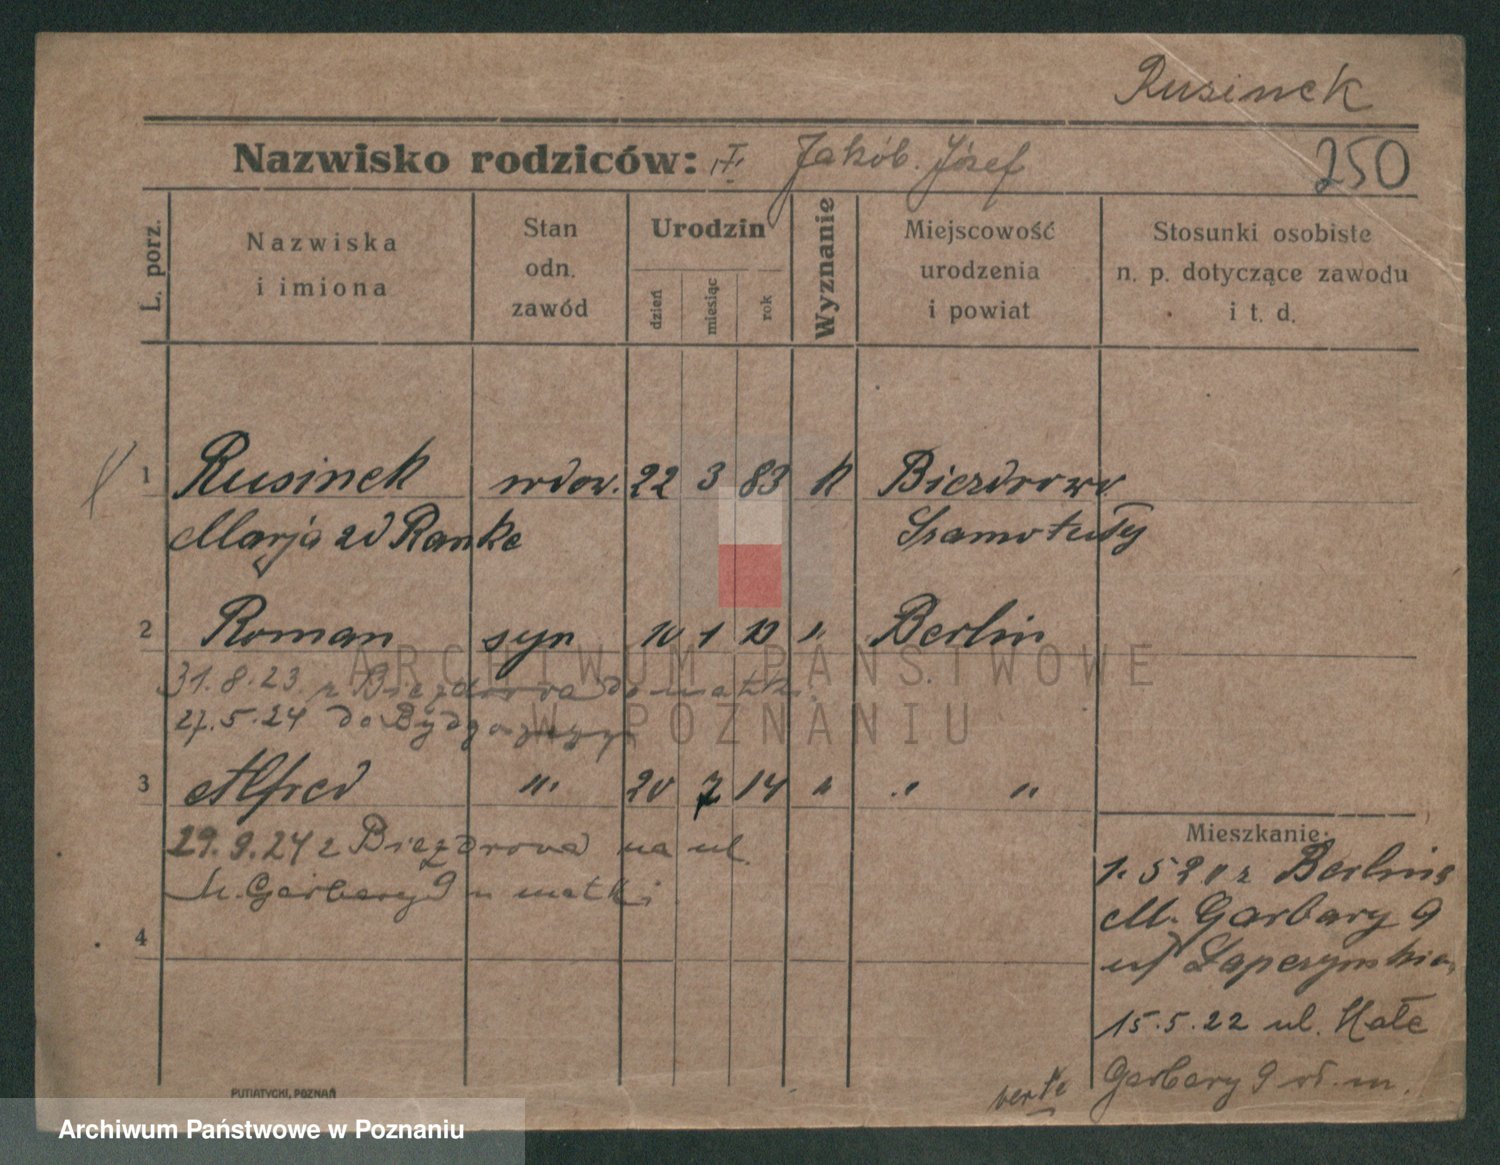 Rusinek
Nazwisko rodziców: "I" Jakób. Józef 250
L. porz.
Nazwiska
i imiona
Stan
odn.
zawód
Urodzin
dzień
miesiąc
rok
Wyznanie
Miejscowość
urodzenia
i powiat
Stosunki osobiste
n. p. dotyczące zawodu
i t. d.
1 Rusinek wdow. 22 3 83 k Biezdrowo
Marja 2d Ranke Szamotuły
2 Roman syn 10 1 " Berlin
31.8.23. z Biezdrowa do matki.
27.5.24 do Bydgoszczy
3 Alfred " 20 7 14 " " "
29.9.24 z Biezdrowa na ul.
M. Garbary 9 u matki.
4
Mieszkanie:
1.5 20 z Berlina
M. Garbary 9
15.5.22 ul. Małe
Garbary 9 m.
verte
PUTIATYCKI, POZNAŃ
ARCHIWUM PAŃSTWOWE
W POZNANIU
Archiwum Państwowe w Poznaniu